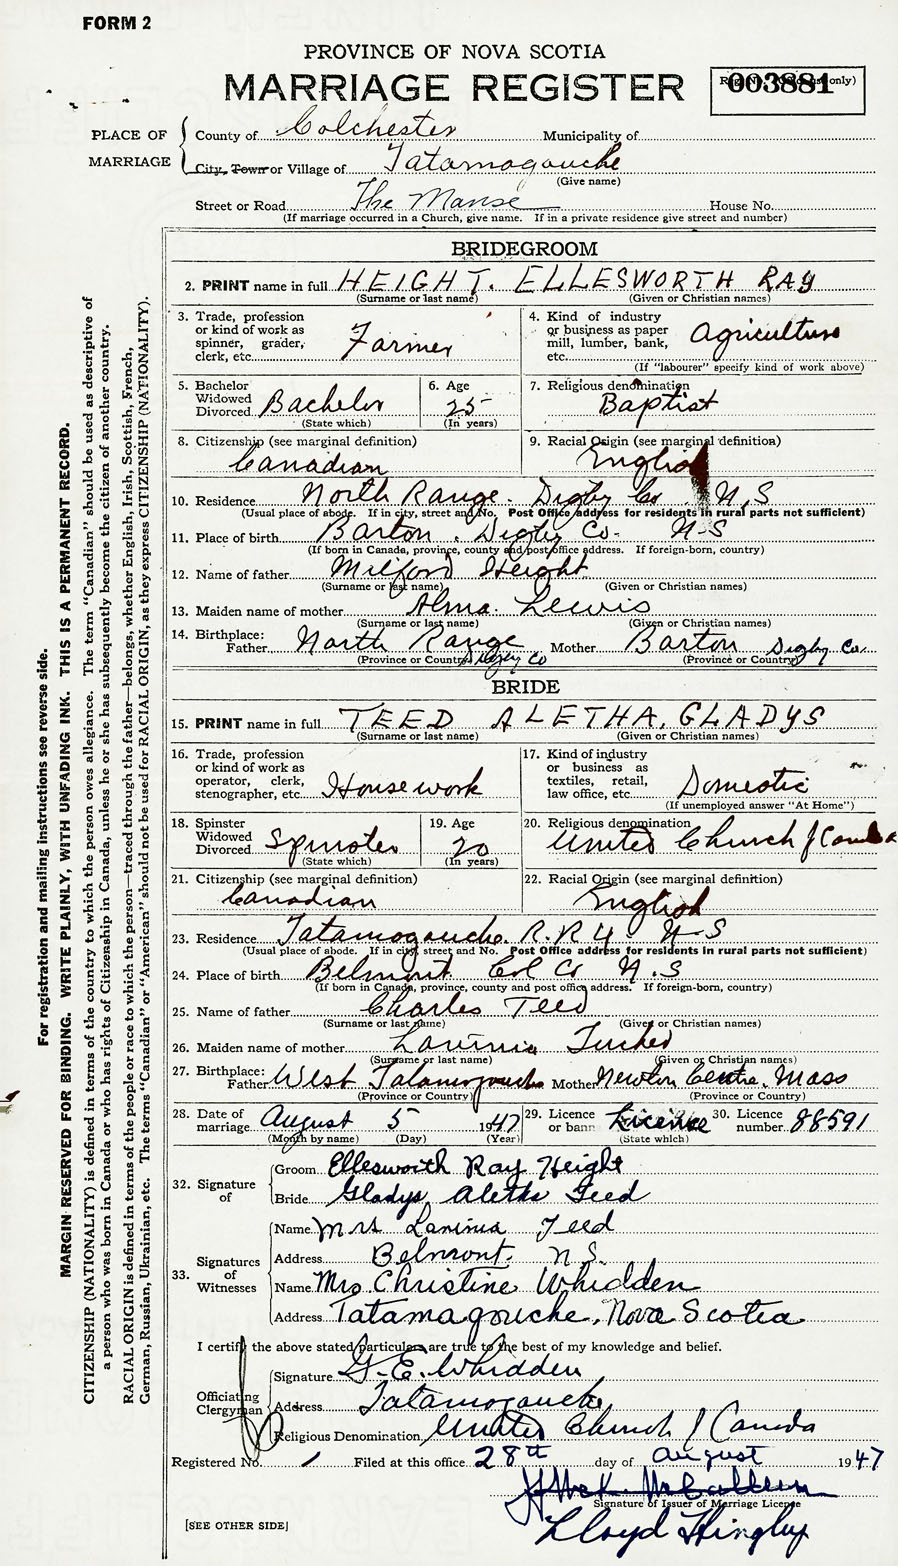 FORM 2
PROVINCE OF NOVA SCOTIA
MARRIAGE REGISTER
003881
PLACE OF MARRIAGE
County of Colchester Municipality of
City, Town or Village of Tatamagouche
(Give name)
Street or Road The Manse House No.
(If marriage occurred in a Church, give name. If in a private residence give street and number)
BRIDEGROOM
2. PRINT name in full HEIGHT. ELLESWORTH RAY
(Surname or last name) (Given or Christian names)
3. Trade, profession or kind of work as spinner, grader, clerk, etc. Farmer
4. Kind of industry or business as paper mill, lumber, bank, etc. Agriculture
(If "labourer" specify kind of work above)
5. Bachelor Widowed Divorced Bachelor
(State which)
6. Age 25
(In years)
7. Religious denomination
Baptist
8. Citizenship (see marginal definition)
Canadian
9. Racial Origin (see marginal definition)
English
10. Residence North Range. Digby Co. N.S
(Usual place of abode. If in city, street and No. Post Office address for residents in rural parts not sufficient)
11. Place of birth Barton. Digby Co- N-S
(If born in Canada, province, county and post office address. If foreign-born, country)
12. Name of father Milford Height
(Surname or last name) (Given or Christian names)
13. Maiden name of mother Alma. Lewis
(Surname or last name) (Given or Christian names)
14. Birthplace: Father North Range Digby Co Mother Barton Digby Co.
(Province or Country) (Province or Country)
BRIDE
15. PRINT name in full TEED ALETHA. GLADYS
(Surname or last name) (Given or Christian names)
16. Trade, profession or kind of work as operator, clerk, stenographer, etc. Housework
17. Kind of industry or business as textiles, retail, law office, etc. Domestic
(If unemployed answer "At Home")
18. Spinster Widowed Divorced Spinster
(State which)
19. Age 20
(In years)
20. Religious denomination
United Church of Canada
21. Citizenship (see marginal definition)
Canadian
22. Racial Origin (see marginal definition)
English
23. Residence Tatamagouche. R.R 4 N-S
(Usual place of abode. If in city, street and No. Post Office address for residents in rural parts not sufficient)
24. Place of birth Belmont Col Co N.S
(If born in Canada, province, county and post office address. If foreign-born, country)
25. Name of father Charles Teed
(Surname or last name) (Given or Christian names)
26. Maiden name of mother Lavinia Tucker
(Surname or last name) (Given or Christian names)
27. Birthplace: Father West Tatamagouche Mother Newton Centre. Mass
(Province or Country) (Province or Country)
28. Date of marriage August 5 1947
(Month by name) (Day) (Year)
29. Licence or bann Licence
(State which)
30. Licence number 88591
32. Signature of
Groom Ellesworth Ray Height
Bride Gladys Aletha Teed
33. Signatures of Witnesses
Name Mrs Lavinia Teed
Address Belmont. N S.
Name Mrs Christine Whidden
Address Tatamagouche, Nova Scotia
I certify the above stated particulars are true to the best of my knowledge and belief.
Officiating Clergyman
Signature G. E. Whidden
Address Tatamagouche
Religious Denomination United Church of Canada
Registered No. 1 Filed at this office 28th day of August 1947
Signature of Issuer of Marriage License
Lloyd
[SEE OTHER SIDE]
For registration and mailing instructions see reverse side.
MARGIN RESERVED FOR BINDING. WRITE PLAINLY, WITH UNFADING INK. THIS IS A PERMANENT RECORD.
CITIZENSHIP (NATIONALITY) is defined in terms of the country to which the person owes allegiance. The term "Canadian" should be used as descriptive of
a person who was born in Canada or who has rights of Citizenship in Canada, unless he or she has subsequently become the citizen of another country.
RACIAL ORIGIN is defined in terms of the people or race to which the person—traced through the father—belongs, whether English, Irish, Scottish, French,
German, Russian, Ukrainian, etc. The terms "Canadian" or "American" should not be used for RACIAL ORIGIN, as they express CITIZENSHIP (NATIONALITY).